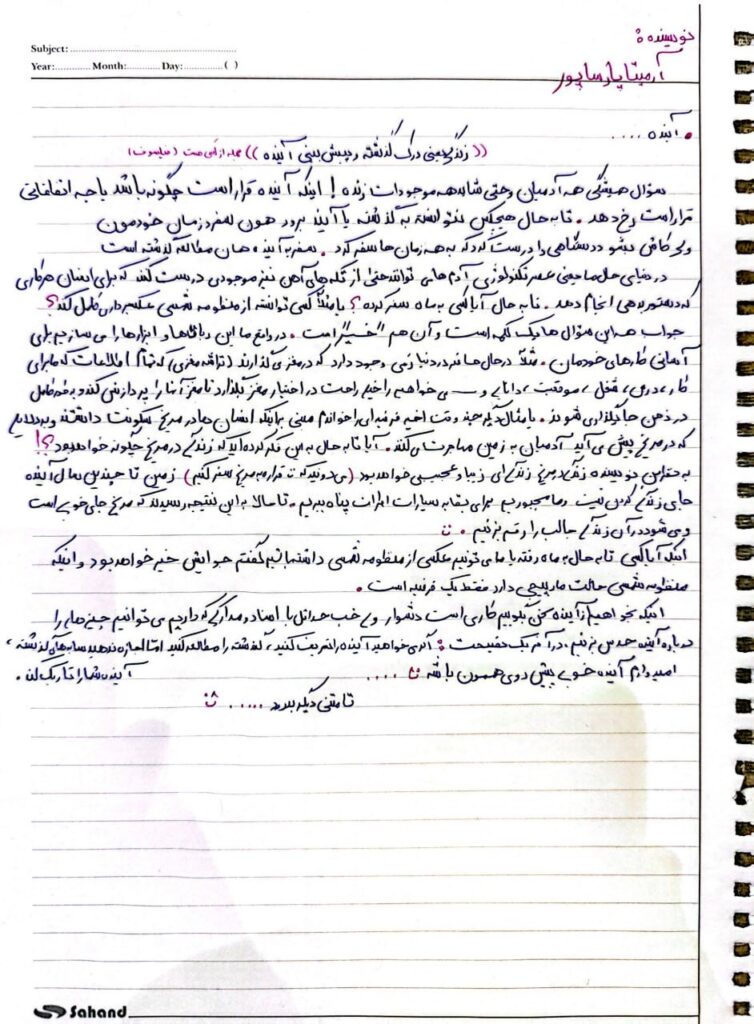 Subject:
Year: Month: Day: ( )
نویسنده :
آرمیتا پارساپور
• آینده ....
(( زندگی یعنی درک گذشته و پیش بینی آینده )) جمله از (فیلسوف)
سؤال همیشگی همه آدمیان و حتی شاید همه موجودات زنده ! اینکه آینده قرار است چگونه باشد یا چه اتفاقاتی
قرار است رخ دهد . تا به حال هیچکس نتونسته به گذشته یا آینده برود چون سفر در زمان خودمون
ولی کاش میشود دستگاهی را درست کرد که به همه زمان ها سفر کرد . سفر به آینده همان مطالعه گذشته است
در دنیای حال ما یعنی عصر تکنولوژی آدم هایی توانستند حتی از تکه های آهن نیز موجودی درست کنند که برای انسان هر کاری
که دستور بدهی انجام دهد . تا به حال آیا کسی به ماه سفر کرده ؟ یا مثلاً کسی توانسته از منظومه شمسی عکسبرداری کامل کند ؟
جواب همه این سؤال ها یک کلمه است و آن هم "خیر" است . در واقع ما این ربات ها و ابزارها را می سازیم برای
آسانی کارهای خودمان . مثلاً در حال حاضر در دنیا وجود دارد که در مغز می گذارند (تراشه مغزی) که تمام اطلاعات که ما برای
کار ، درس ، شغل ، موقعیت ، دانایی و ... می خواهیم را خیلی راحت در اختیار مغز بگذارد تا مغز آنها را پردازش کند و به طور کامل
در ذهن جاگذاری شوند . یا مثال دیگر چند وقت اخیر فرضیه ای را خواندم مبنی بر اینکه انسان ها در مریخ سکونت داشتند و به دلایلی
که در مریخ پیش می آید آدمیان به زمین مهاجرت می کنند . آیا تا به حال به این فکر کرده اید که زندگی در مریخ چگونه خواهد بود ؟!
به نظر این نویسنده زندگی در مریخ زندگی ای زیبا و عجیبی خواهد بود (می دونید که قراره به مریخ سفر کنیم) زمین تا چندین سال آینده
جای زندگی کردن نیست و ما مجبوریم برای بقا به سیارات اطراف پناه ببریم . تا حالا به این نتیجه رسیدند که مریخ جای خوبی است
و می شود در آن زندگی جالب را رقم بزنیم .
اینکه آیا کسی تا به حال به ماه رفته یا ما می توانیم عکسی از منظومه شمسی داشته باشیم گفتم جوابش خیر خواهد بود و اینکه
منظومه شمسی حالت مارپیچی دارد فقط یک فرضیه است .
اینکه بخواهیم از آینده سخن بگوییم کاری است دشوار ولی خب حداقل با اسناد و مدارکی که داریم می توانیم چیزهایی را
درباره آینده حدس بزنیم ، در آخر یک حقیقت : اگر می خواهید آینده را تعریف کنید ، گذشته را مطالعه کنید اما اجازه ندهید سایه های گذشته ،
آینده شما را تاریک کند .
امیدوارم آینده خوبی پیش روی همه مون باشه ....
تا متنی دیگر بدرود .....
Sahand